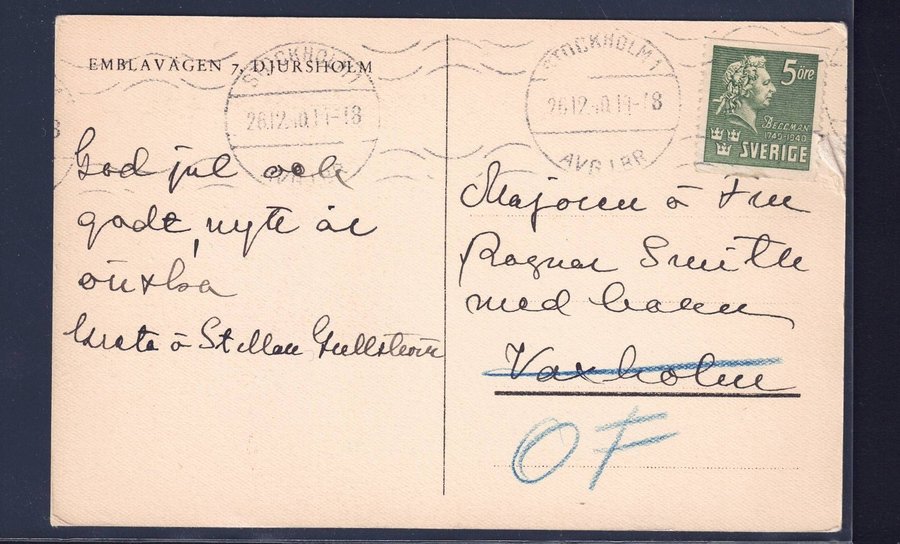 EMBLAVÄGEN 7, DJURSHOLM
God jul och
godt nytt år
önska
Greta o Stellan Gullström
STOCKHOLM 1
26.12.40.17-18
AVG LBR
STOCKHOLM 1
26.12.40.17-18
AVG LBR
5 öre
BELLMAN
1740-1940
SVERIGE
Majoren o Fru
Ragnar Smith
med barn
Vaxholm
OF